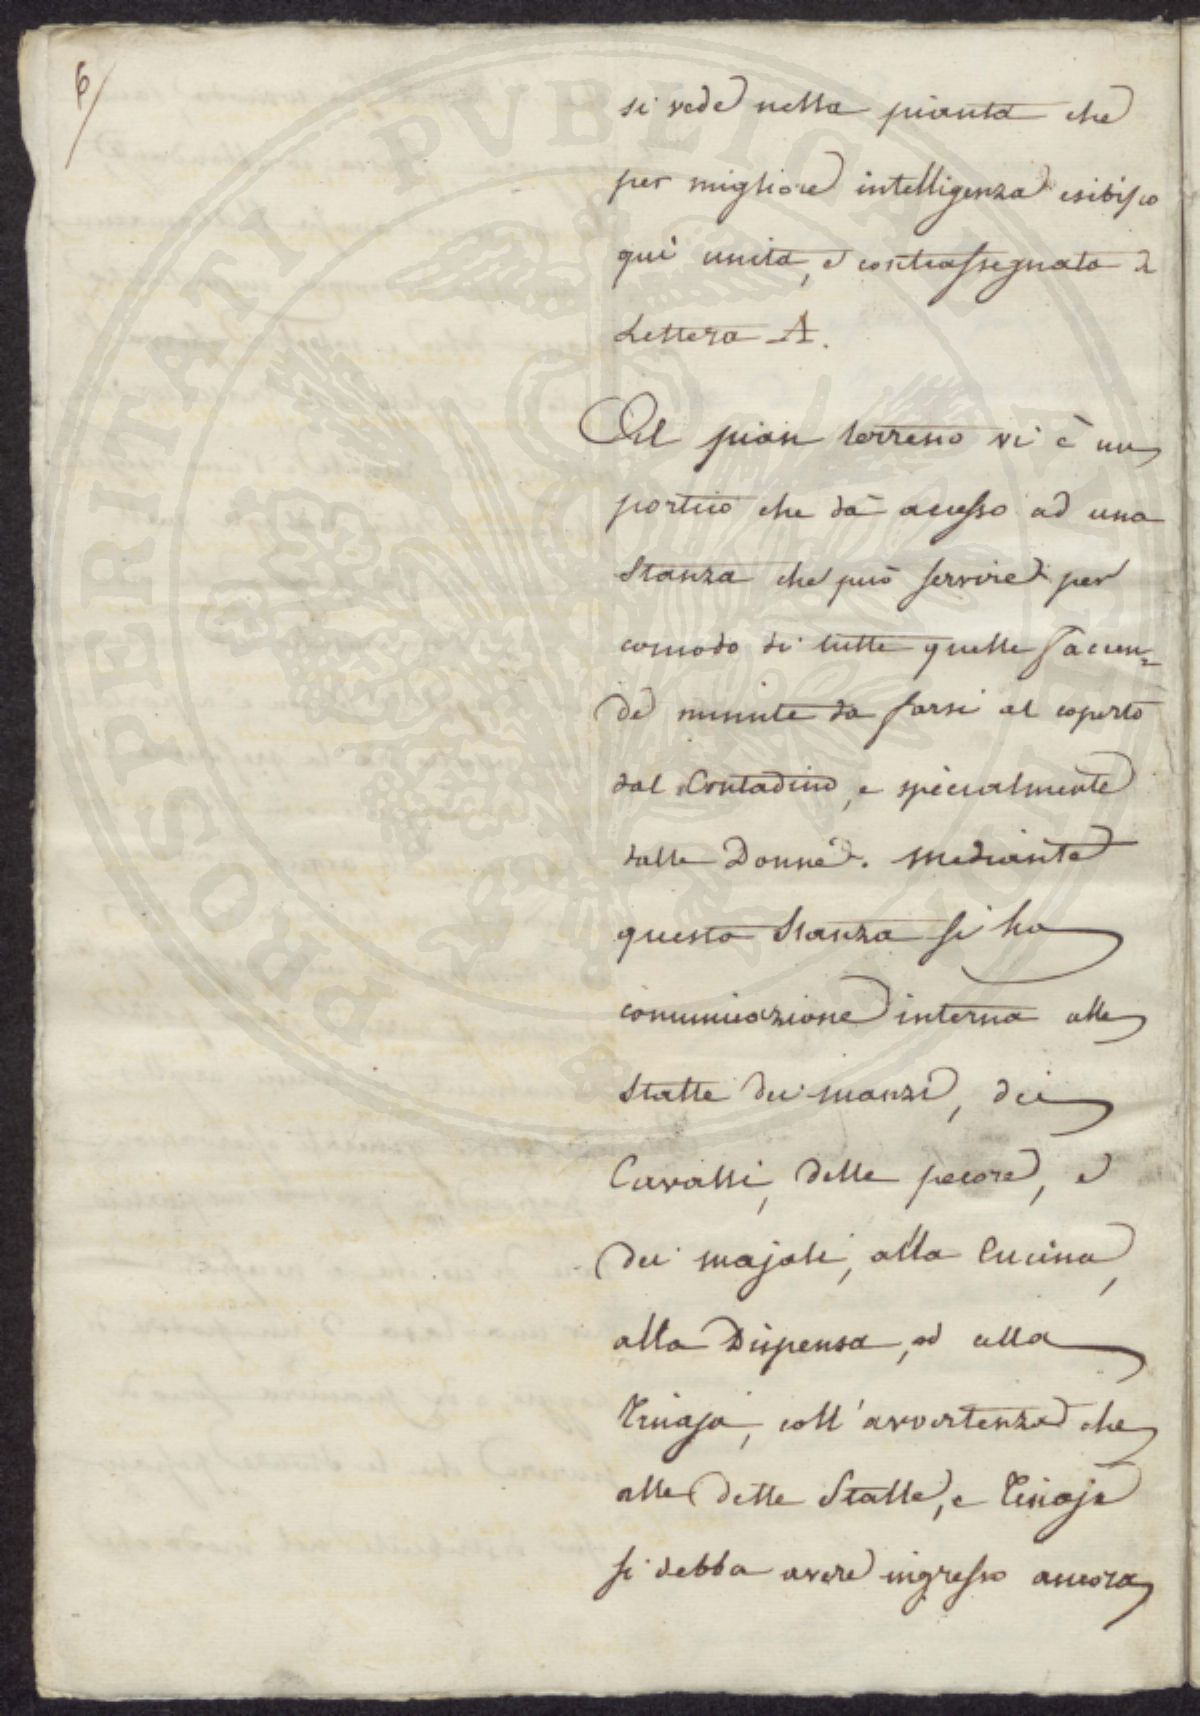 6/
si vede nella pianta che
per migliore intelligenza esibisco
quì unita, e contrassegnata di
Lettera A.
Al pian terreno vi è un
portico che dà acesso ad una
Stanza che può servire per
comodo di tutte quelle facen=
de minute da farsi al coperto
dal Contadino, e specialmente
dalle Donne. Mediante
questa Stanza si ha
comunicazione interna alle
Stalle dei manzi, dei
Cavalli, delle pecore, e
dei majali, alla Cucina,
alla Dispensa, ed alla
Tinaja, coll'avvertenza che
alle dette Stalle, e Tinaja
si debba avere ingresso ancora
PROSPERITATI PVBLICAE AVGENDAE